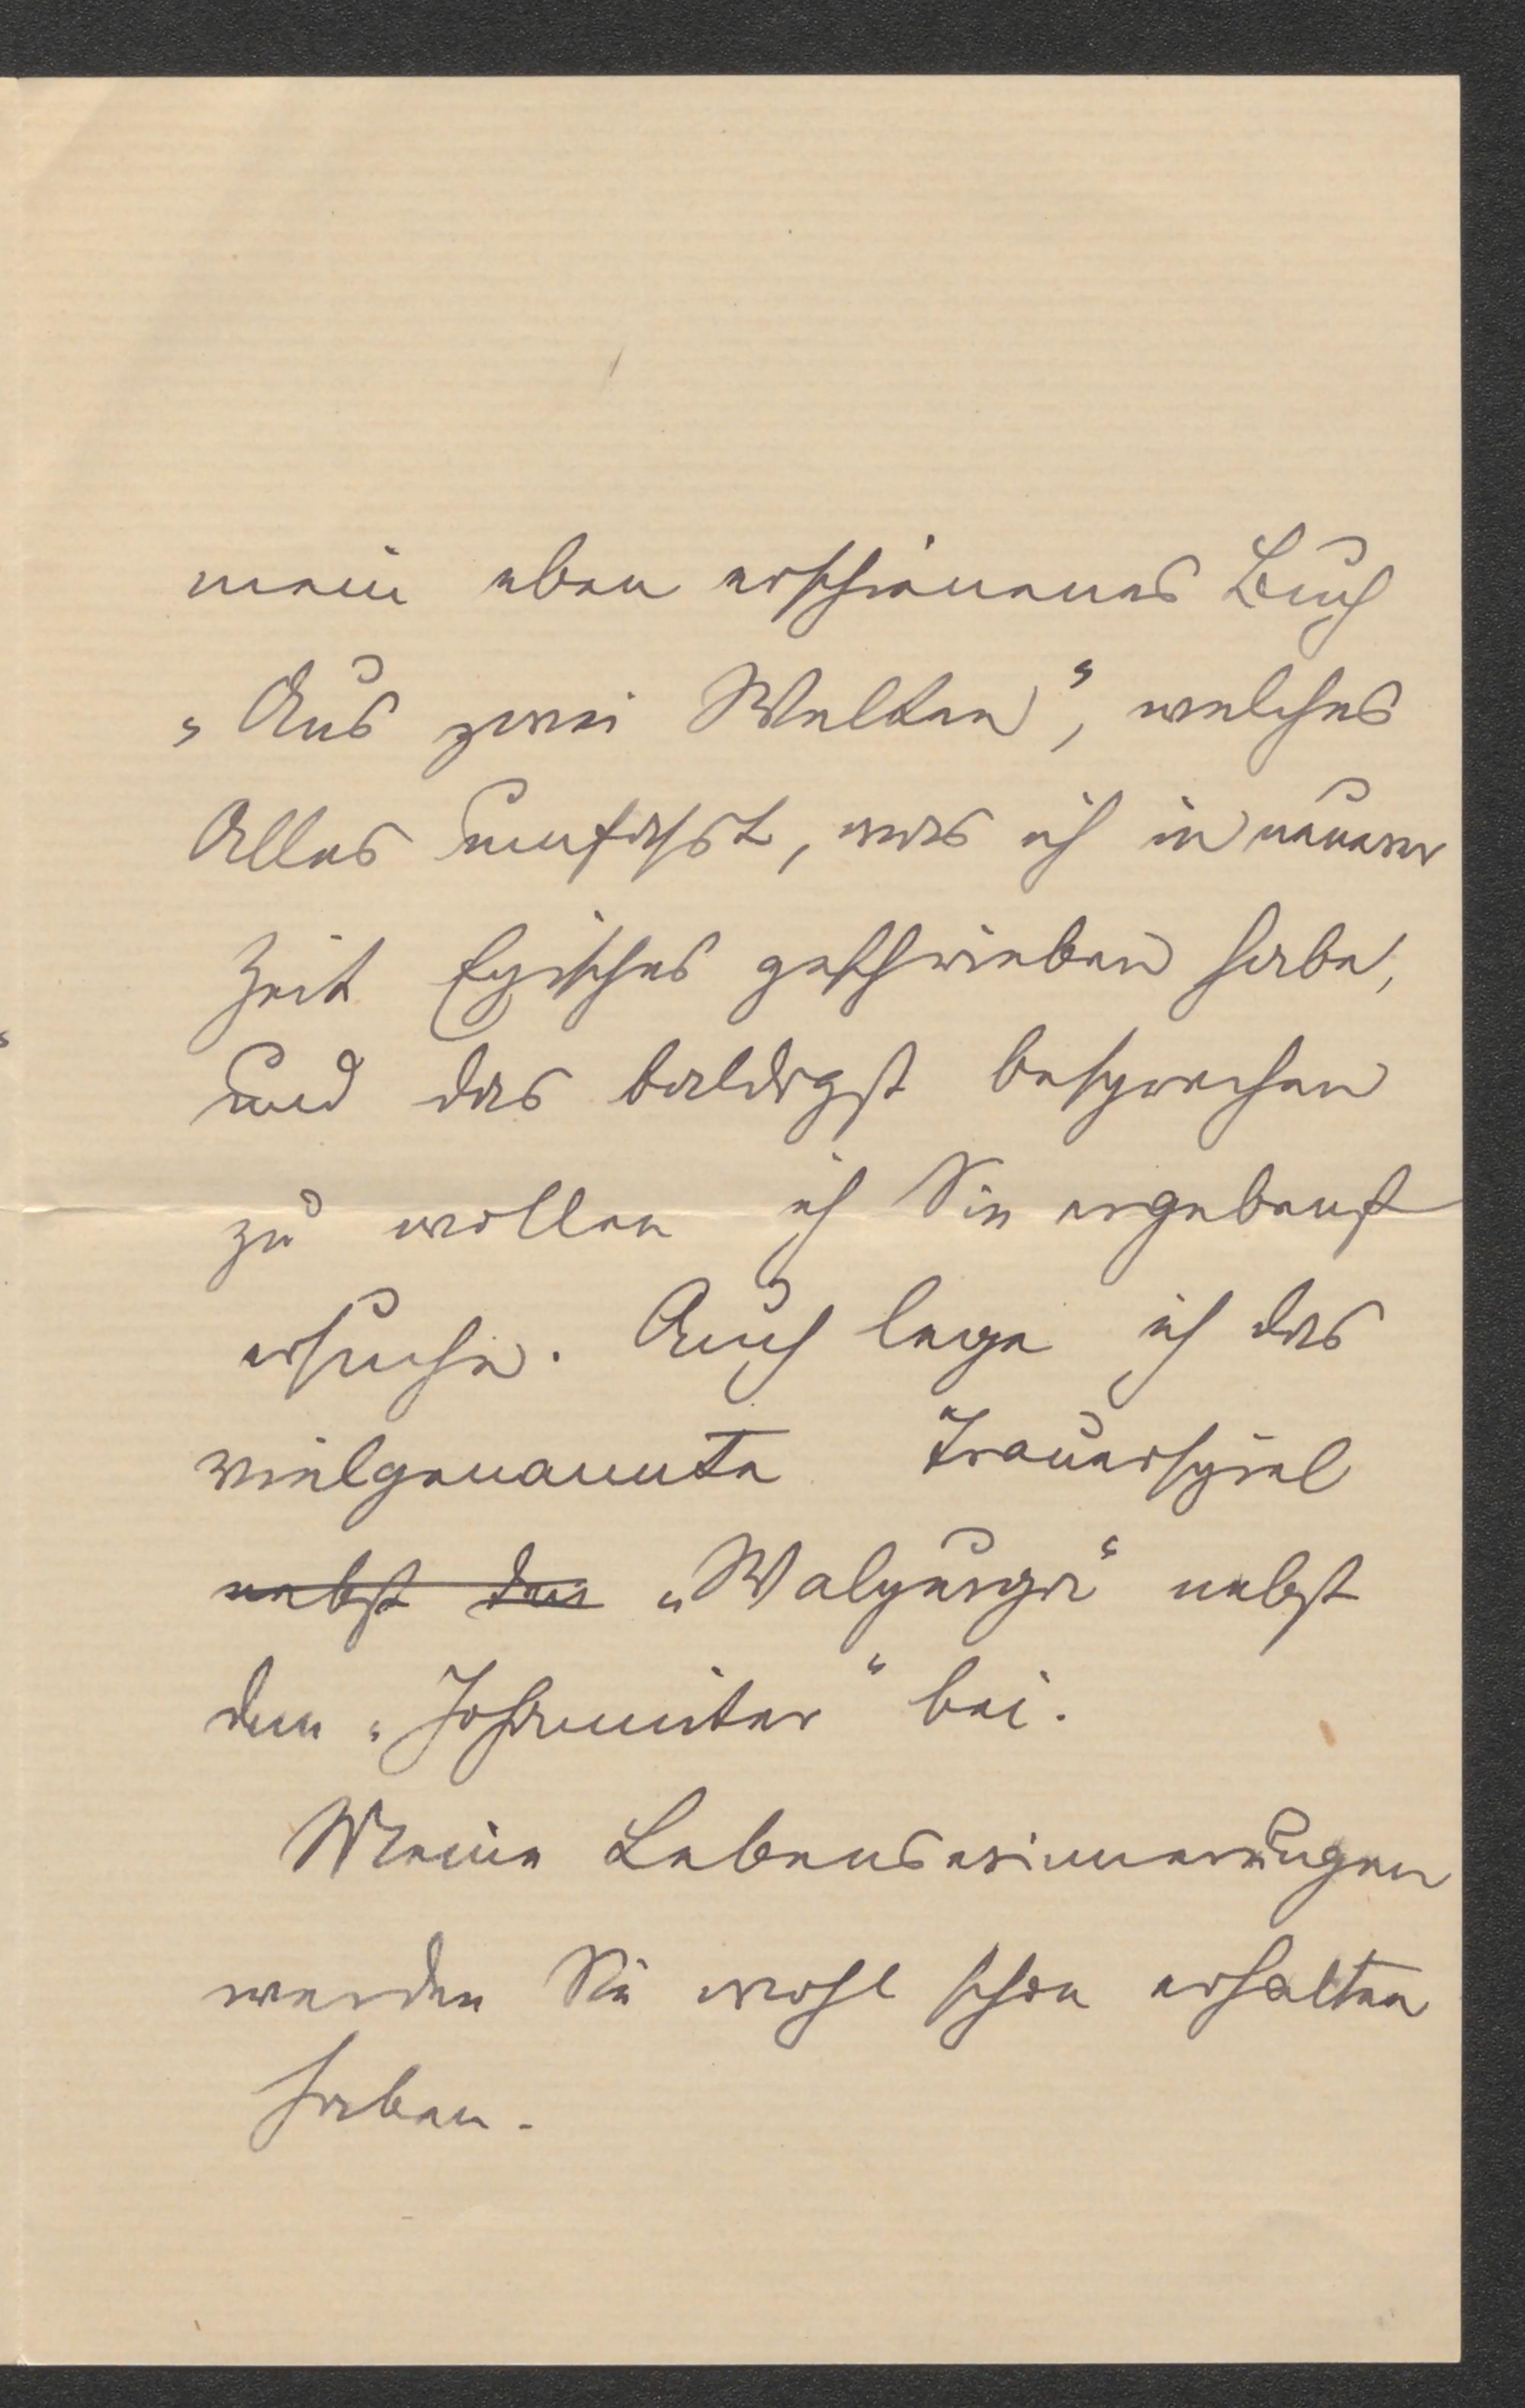 mein eben erschienenes Buch
„Aus zwei Welten", welches
Alles umfaßt, was ich in neuerer
Zeit Episches geschrieben habe,
und das baldigst besprechen
zu wollen ich Sie ergebenst
ersuche. Auch lege ich das
vielgenannte Trauerspiel
nebst den „Walpurga" nebst
dem „Johanniter" bei.
Meine Lebenserinnerungen
werden Sie wohl schon erhalten
haben.